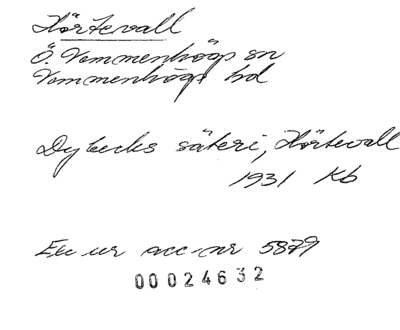 Hörtevall
Ö. Vemmenhögs sn
Vemmenhögs hd
Dybecks säteri, Hörtevall
1931 Kb
Ex ur acc.nr 5879
00024632